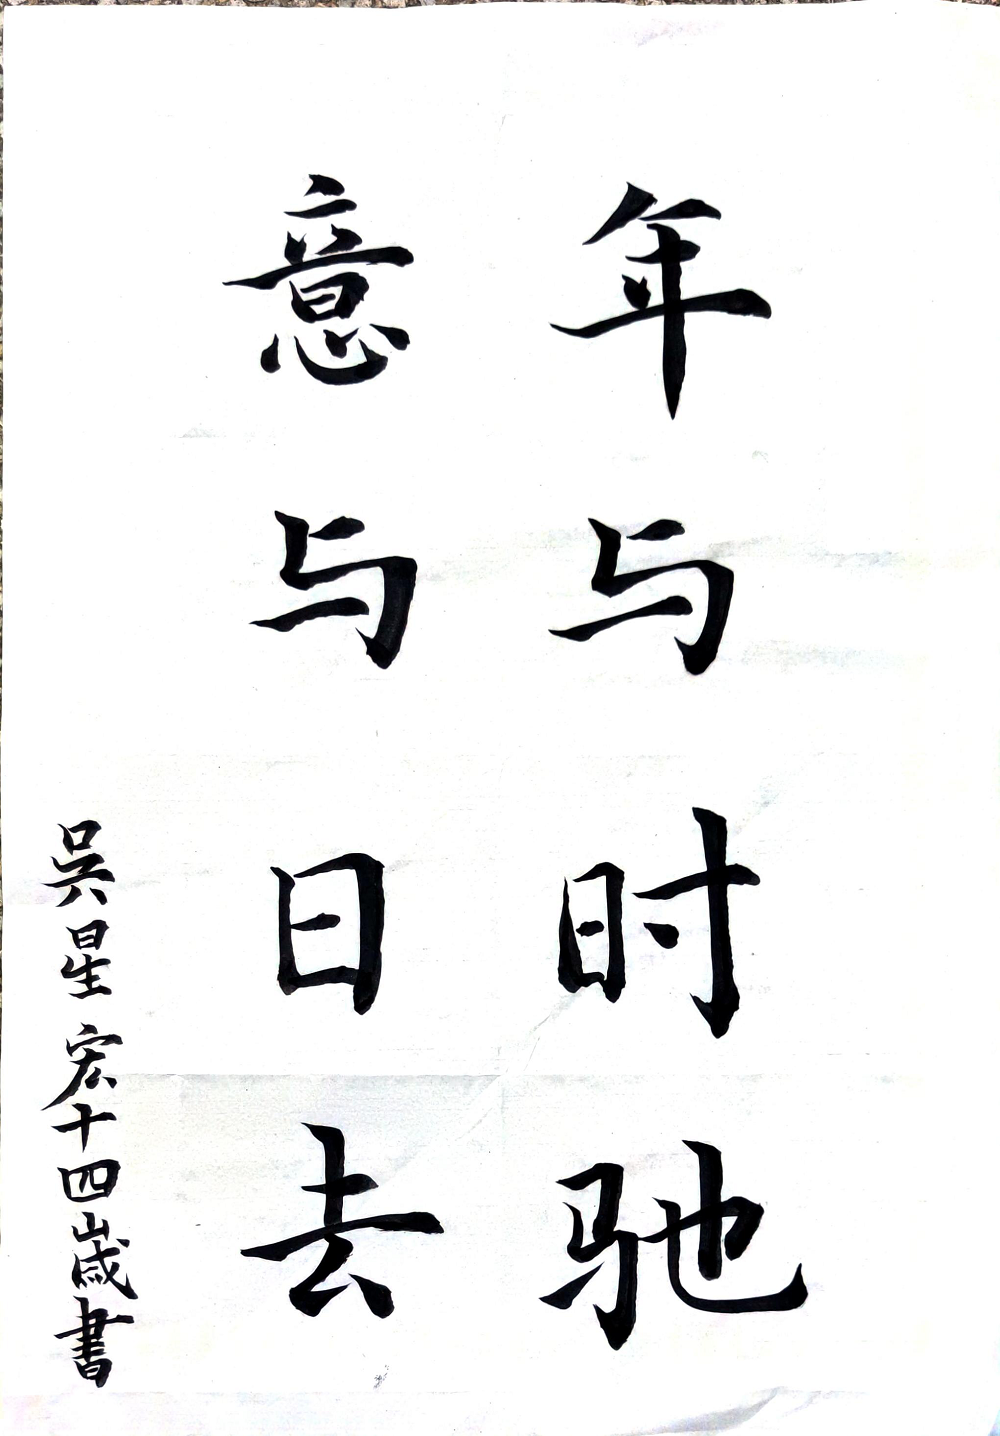 年与时驰
意与日去
吳星宏十四歲書